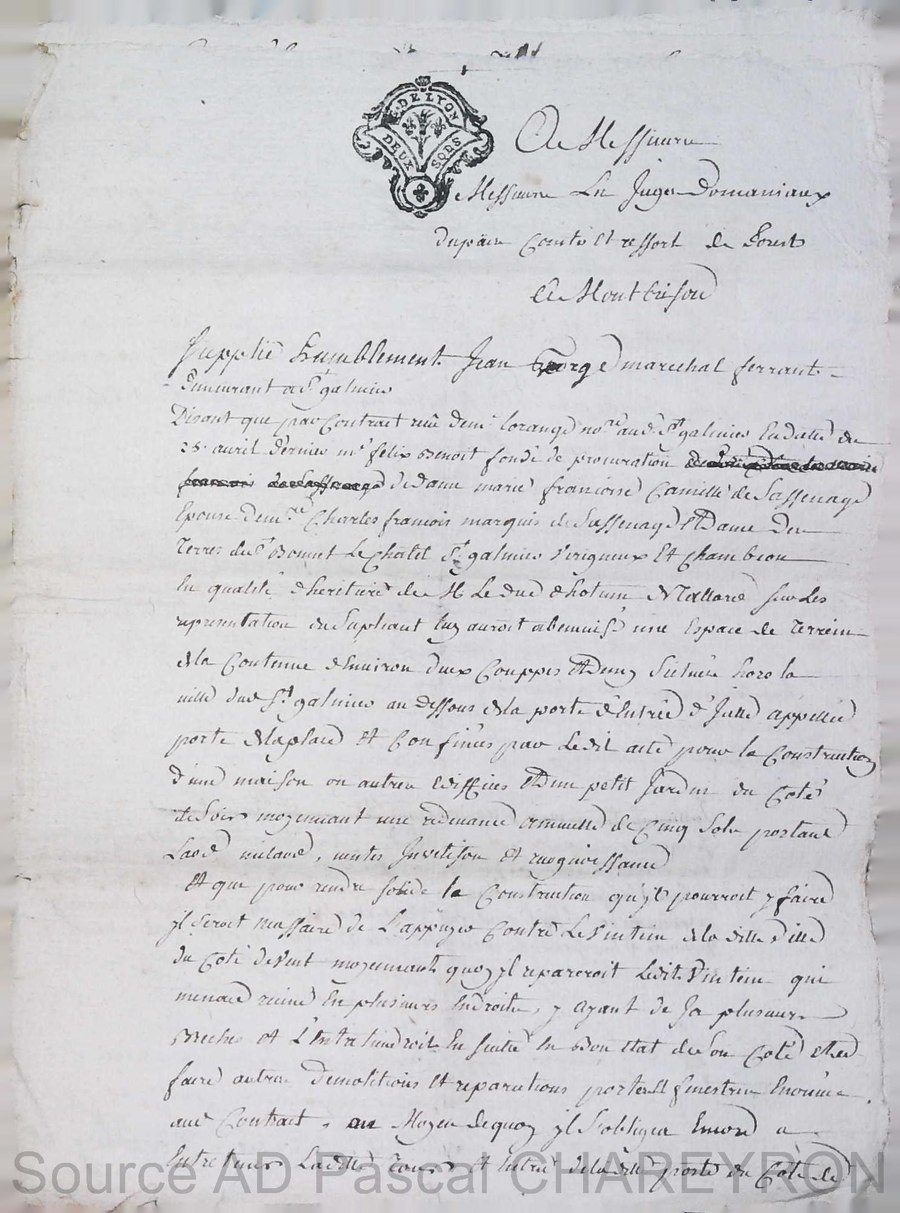 G. DE LYON
DEUX SOLS
A Messieurs
Messieurs Les Juges Domaniaux
du pais Comté et ressort de Forest
A Montbrison
Supplie humblement Jean George marechal ferrant
Demeurant a St galmier
Disant que par Contract reçu de me. lorange nore. aud. St galmier En datte du
25. avril dernier mr. felix Benoit fondé de procuration
de dame marie francoise Camille de Sassenage
Epouse de mre. Charles francois marquis de Sassenage Et Dame des
Terres de St. Bonnet Le Chatel St. galmier Virigneux Et Chambeon
En qualité d'heritiere de M. Le duc d'hotun Tallard sur Les
representation du Supliant luy auroit abenevisé une Espace de Terrein
de la Contenue d'Environ deux Couppes Et Demy Scituée hors la
ville dud. St. galmier au dessous de la porte d'Entrée d'Icelle appellée
porte de la place Et Confinée par Ledit acte pour la Construction
d'une maison ou autres Ediffices Et d'un petit Jardin du Coté
de Soir moyennant une redevance annuelle de Cinq Sols portant
Laod milaod, ventes Investison Et recognoissance
Et que pour rendre solide la Construction qu'yl pourroit y faire
yl Seroit nessaire de L'appuyer Contre Le Vintein de la ditte Ville
du Coté de Vent moyennant quoy yl repareroit Ledit Vintein qui
menace ruine En plusieurs Endroits, y ayant de Ja plusieurs
Breches et L'Entretiendroit En suitte En Bon Etat de Son Coté
faire autres Demolitions Et reparations portes Et fenestres Enoncées
aud. Contract, au Moyen de quoy yl S'oblige Encore a
Entretenir Laditte Tour et Entrée de laditte porte du Coté de
Source AD Pascal CHAREYRON